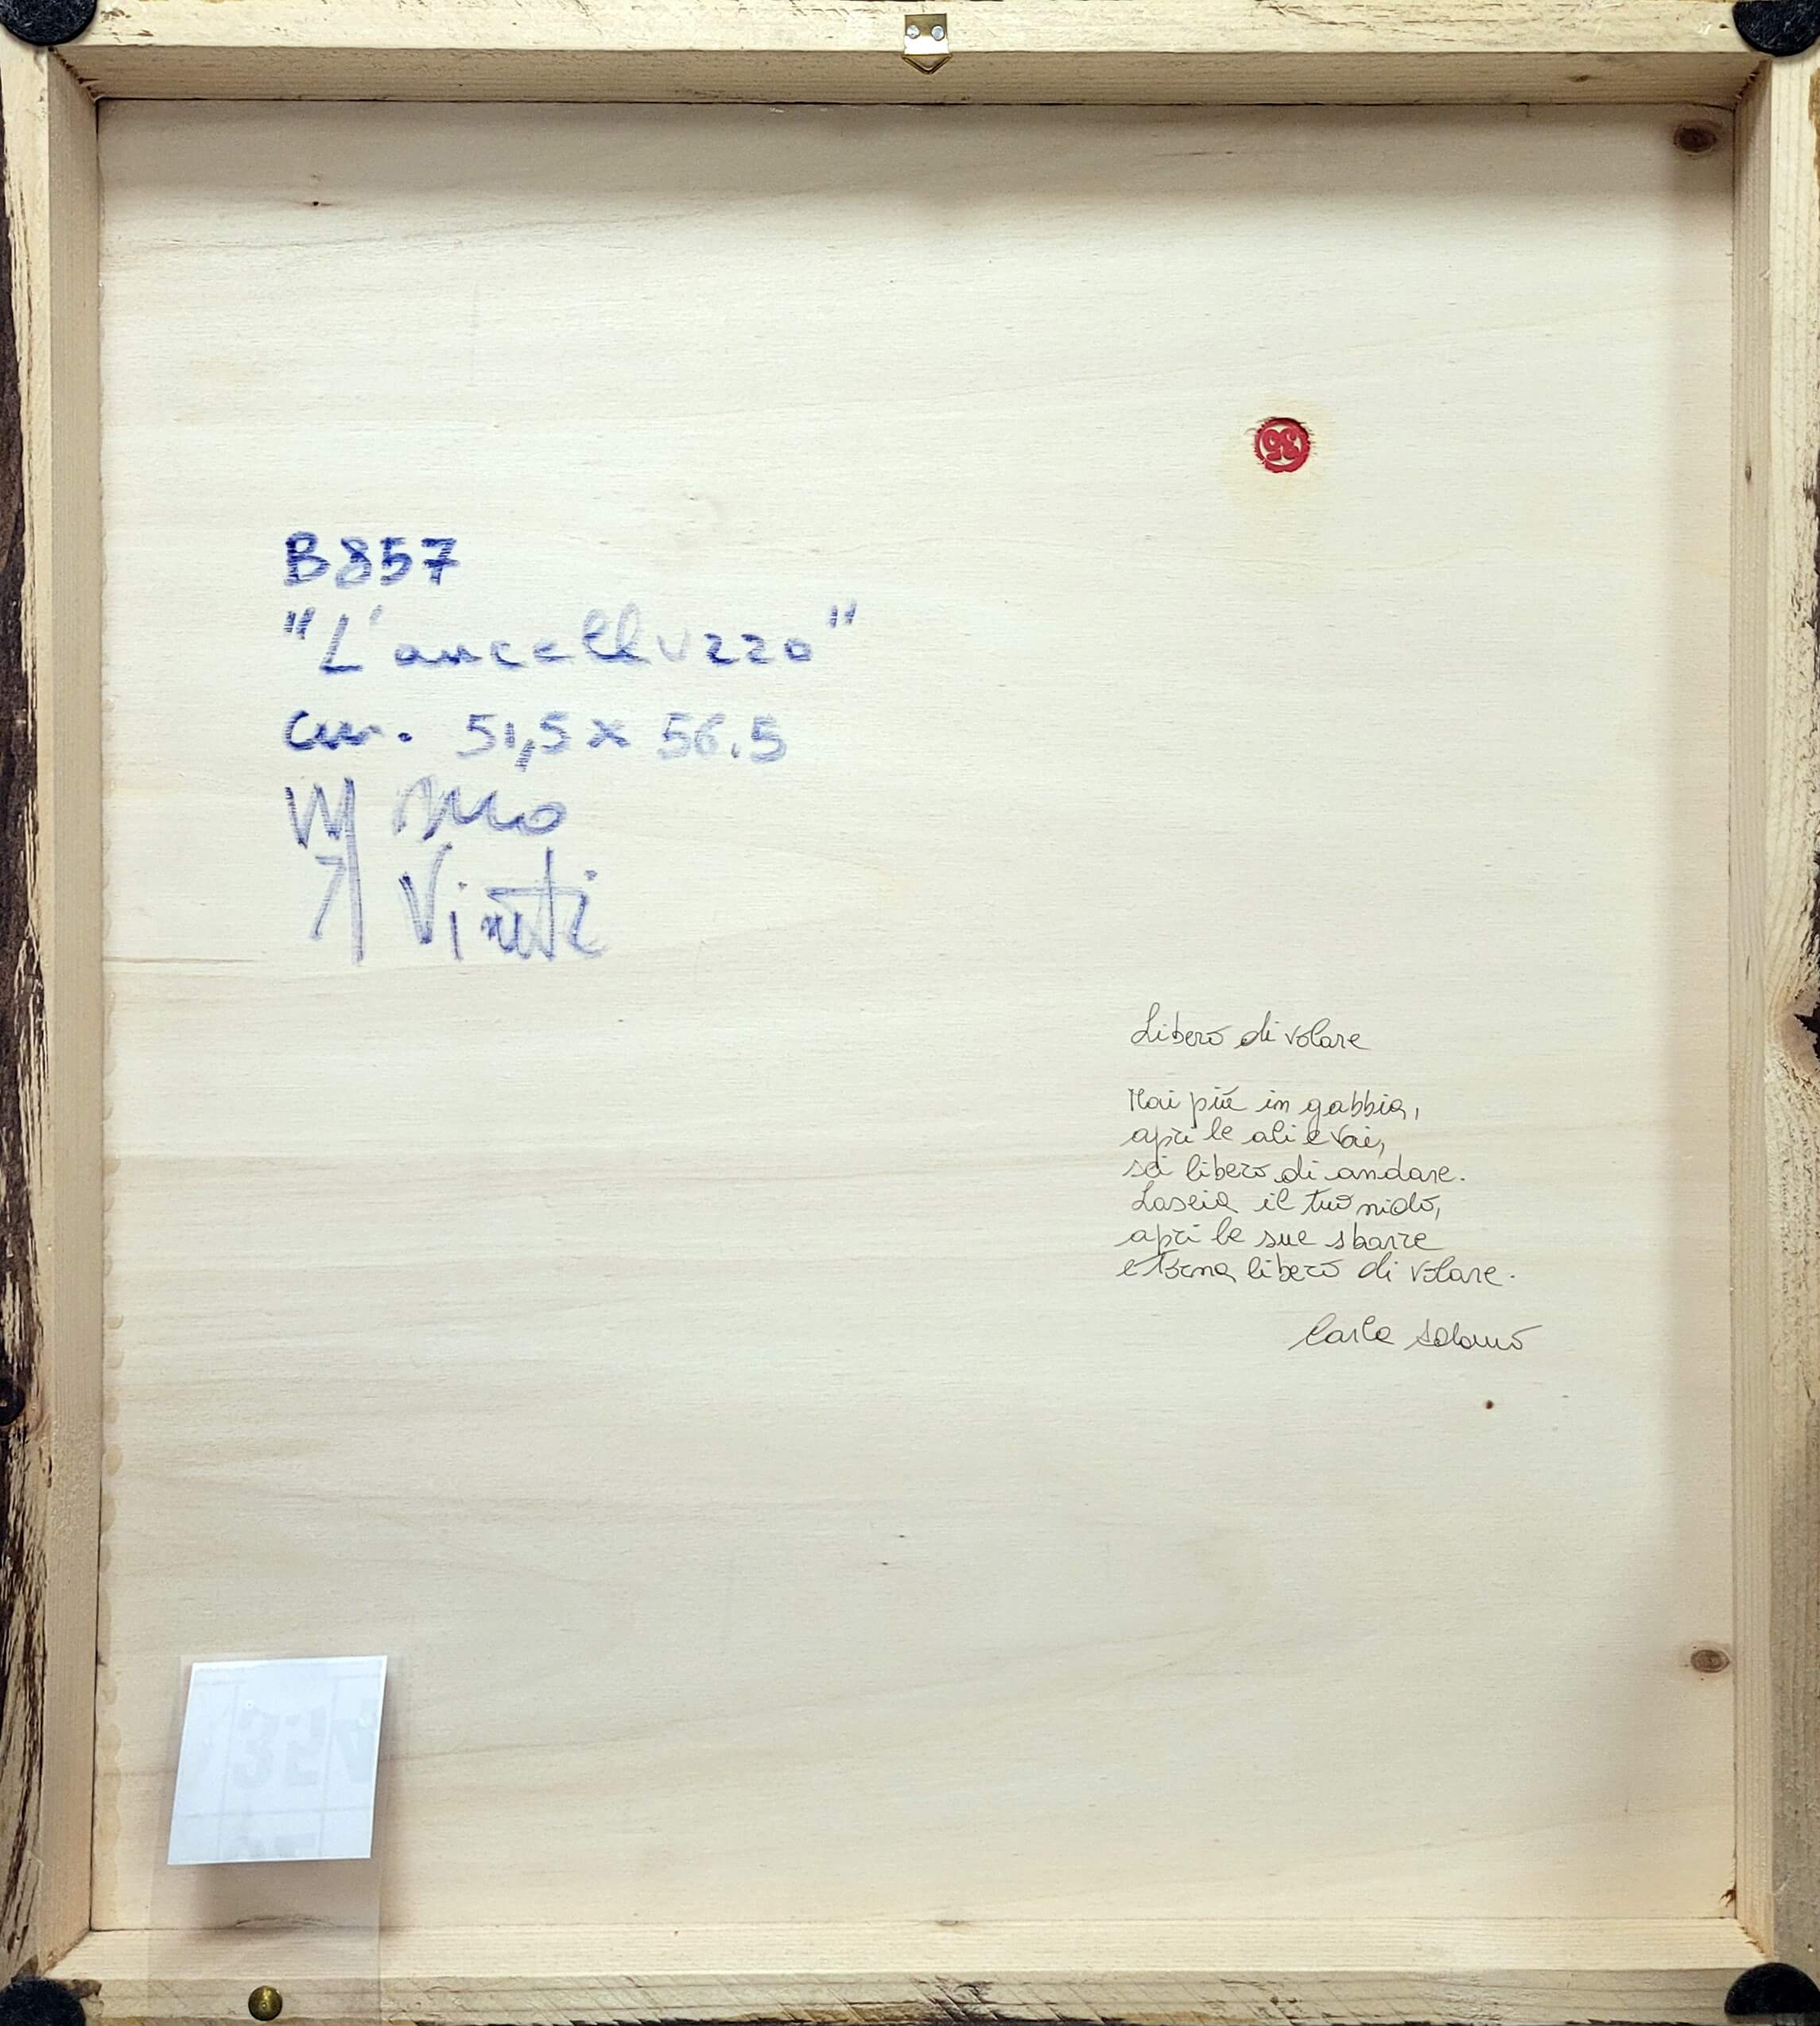 B857
"L'aucelluzzo"
cm. 51,5 x 56.5
Vinti
35
Libero di volare
Mai più in gabbia,
apri le ali e vai,
sei libero di andare.
Lascia il tuo nido,
apri le sue sbarre
e torna libero di volare.
Carla